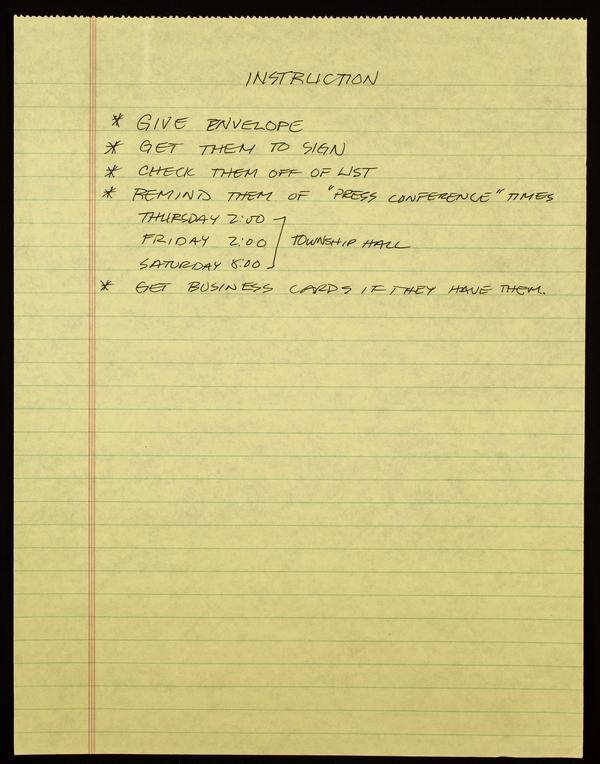 INSTRUCTION
* GIVE ENVELOPE
* GET THEM TO SIGN
* CHECK THEM OFF OF LIST
* REMIND THEM OF "PRESS CONFERENCE" TIMES
THURSDAY 2:00
FRIDAY 2:00 TOWNSHIP HALL
SATURDAY 8:00
* GET BUSINESS CARDS IF THEY HAVE THEM.